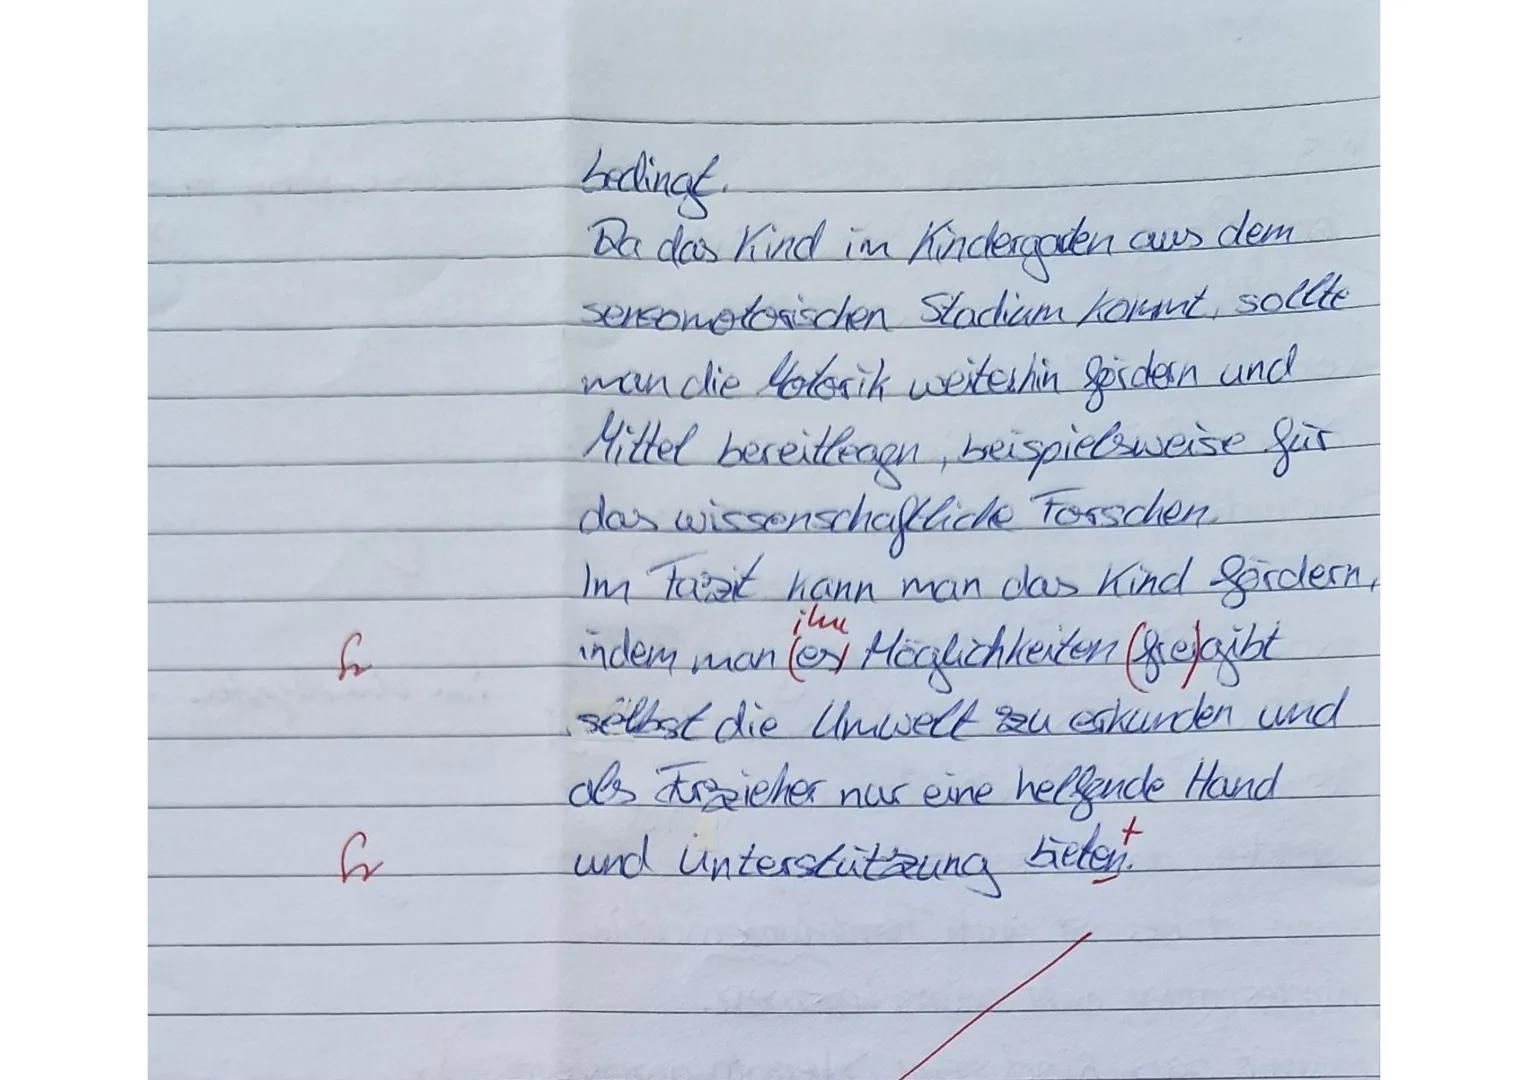 bedingt.
Da das Kind im Kindergaden aus dem
sensomotorischen Stadium kommt, sollte
man die Motorik weiterhin fördern und
Mittel bereitleagn, beispielsweise für
das wissenschaftliche Forschen.
Im Fazit kann man das Kind fördern,
ihm
indem man (es) Möglichkeiten (ge)gibt
selbst die Umwelt zu erkunden und
als Erzieher nur eine helfende Hand
t
und Unterstützung bieten.